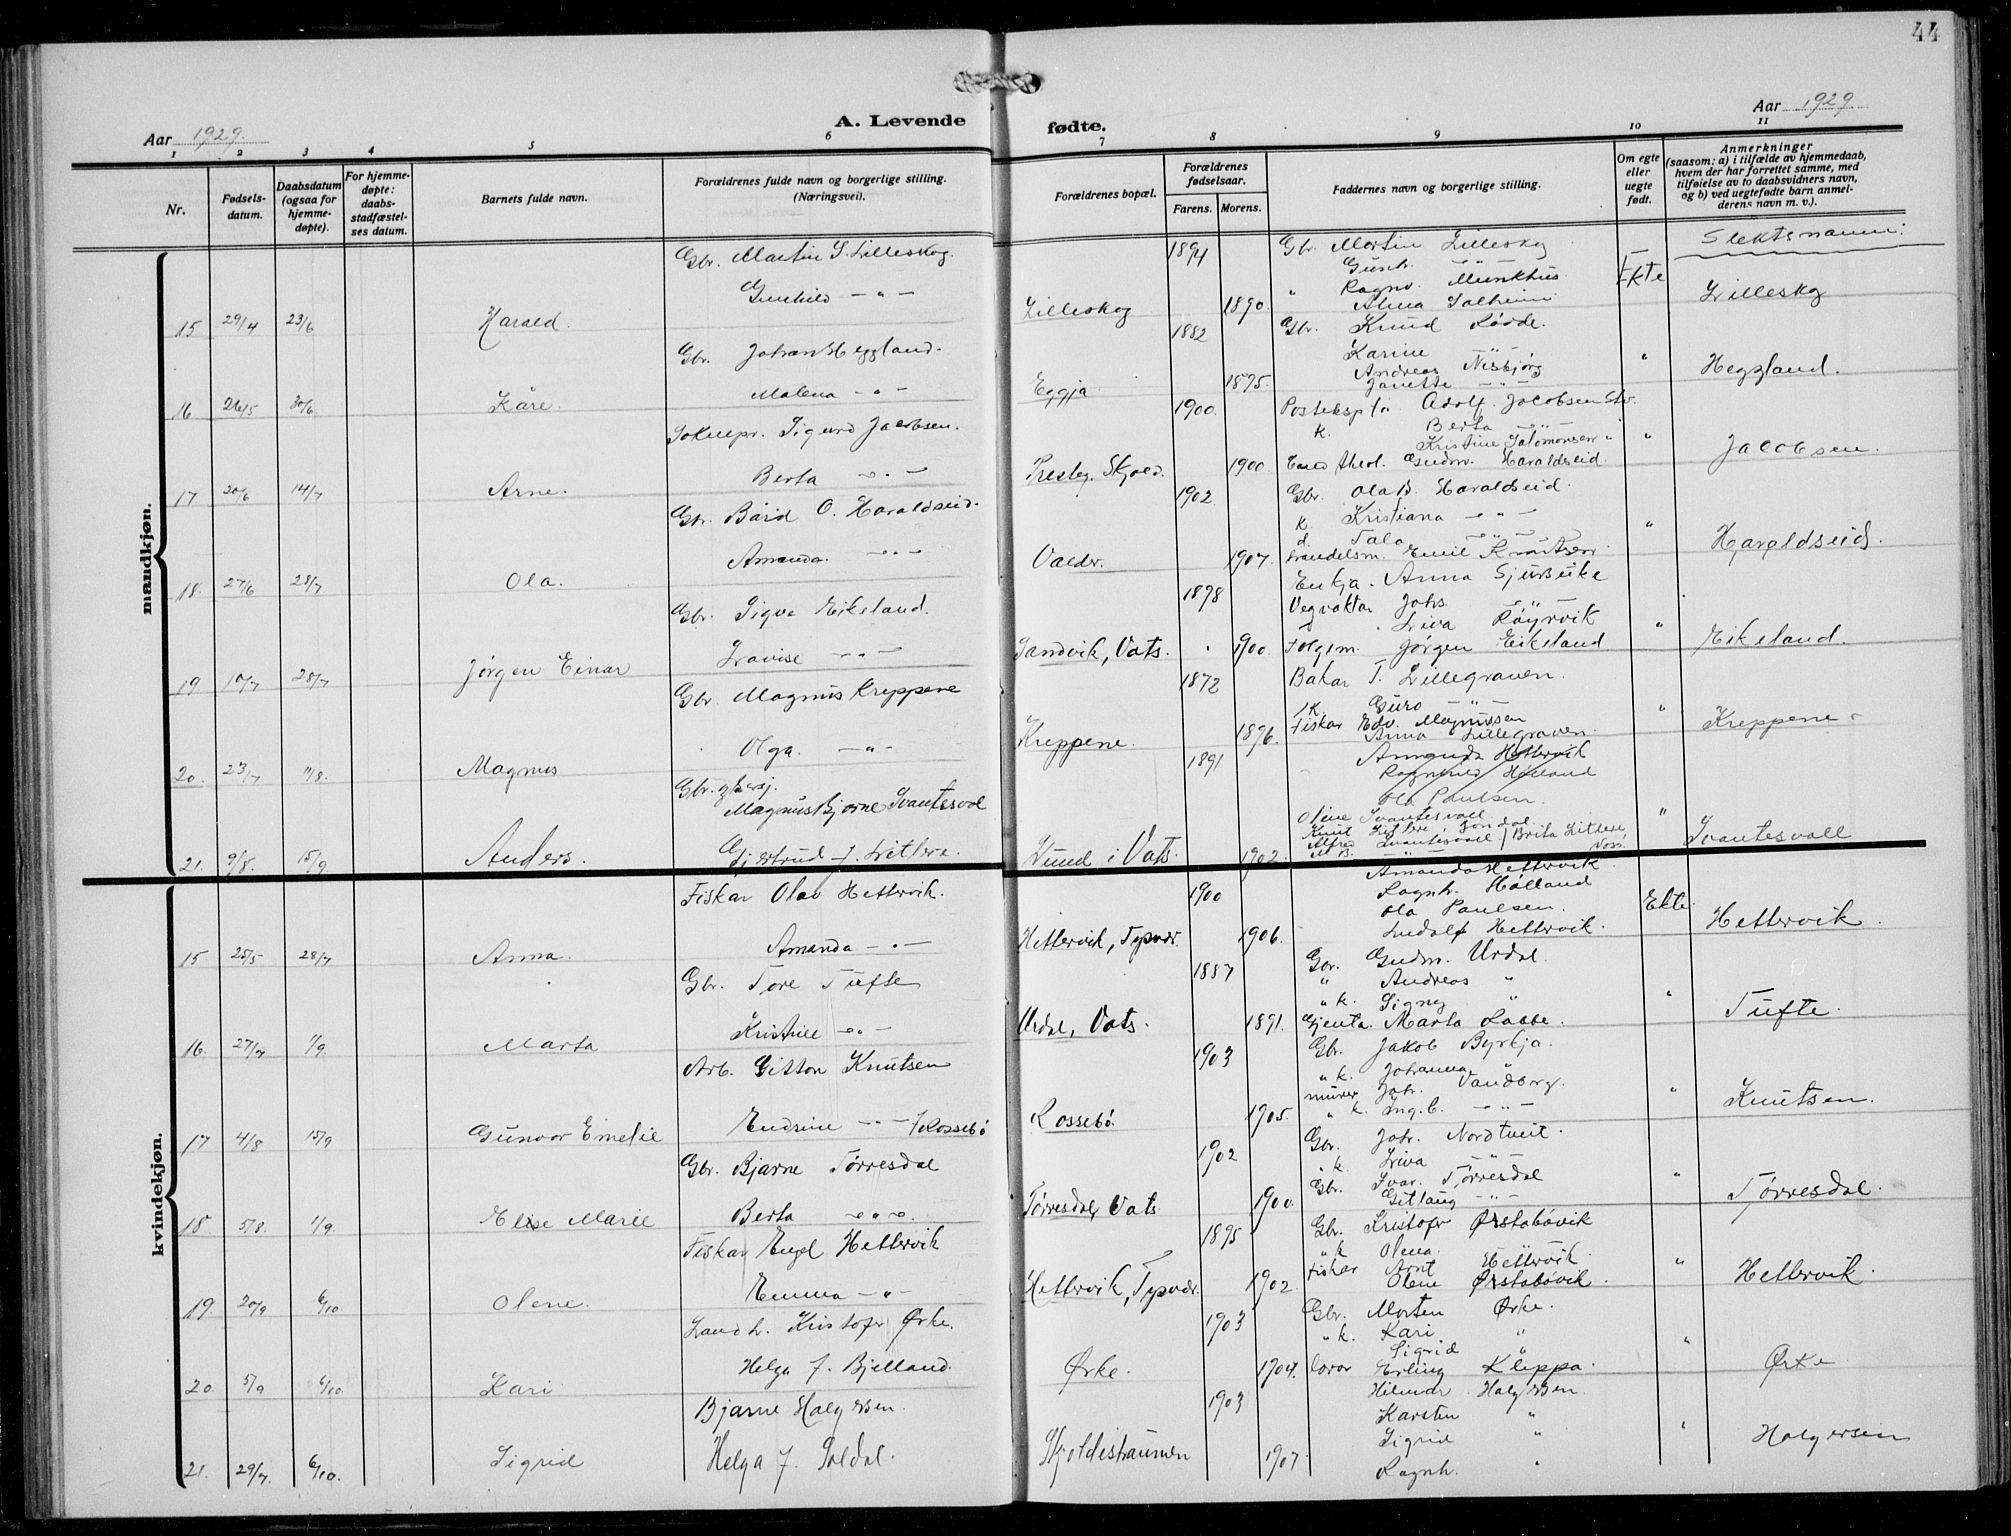 44
Aar 1929.
A. Levende fødte.
Aar 1929
1 2 3 4 5 6 7 8 9 10 11
Nr.
Fødsels-
datum.
Daabsdatum
(ogsaa for
hjemme-
døpte).
For hjemme-
døpte:
daabs-
stadfæstel-
ses datum.
Barnets fulde navn.
Forældrenes fulde navn og borgerlige stilling.
(Næringsvei).
Forældrenes bopæl.
Forældrenes
fødselsaar.
Farens. Morens.
Faddernes navn og borgerlige stilling.
Om egte
eller
uegte
født.
Anmerkninger
(saasom: a) i tilfælde av hjemmedaab,
hvem der har forrettet samme, med
tilføielse av to daabsvidners navn,
og b) ved uegtefødte barn anmel-
derens navn m. v.).
Slektsnamn:
mandkjøn.
15 29/4 23/6 Harald.
Gbr. Martin S. Lilleskog.
Gunhild — " —
Lilleskog 1894 1890.
Gbr. Martin Lilleskog
Gunh. " "
" Ragnv. Munkhus
Alma Solheim
Ekte
Lilleskog
16 26/5 30/6 Kåre.
Gbr. Johan Heggland.
Malena — " —
Eggja 1882 1895.
Gbr. Knud Rødde.
Karine "
Andreas Nisbjørg
Janette — " —
" Heggland.
17 20/6 14/7 Arne.
Soknepr. Sigurd Jacobsen.
Berta — " —
Presteg. Skjold. 1900. 1900
Postekspitø. Adolf. Jacobsen Str.
k. Berta — " —
Kristine Salomonsen "
Cand. theol. Gudm. Haraldseid.
" Jacobsen
18. 27/6 28/7 Ola.
Gbr. Bård O. Haraldseid.
Amanda. — " —
Valdr. 1902 1907.
Gbr. Ola B. Haraldseid.
k. Kristiana — " —
d. Tala — " —
Handelsm. Emil Knutsen
" Haraldseid.
19 10/7 28/7 Jørgen Einar
Gbr. Sigve Eikeland.
Lovise — " —
Sandvik, Vats. 1898 1900.
Enkja. Anna Sjursike
Vegvaktar Johs. "
Liva Røyrvik
Folgem. Jørgen Eikeland
" Eikeland.
20. 23/7 11/8. Magnus
Gbr Magnus Kreppene
Olga. — " —
Kreppene. 1872 1896.
Bakar T. Lillegraven.
k. Guro — " —
Fiskar Edv. Magnussen
Anna Lillegraven.
" Kreppene
21. 9/8. 15/9 Anders.
Gbr.
Magnus Bjarne Svantesvol
Gjertrud f. Litlere.
i Vats. 1891 1902.
Amanda Hettervik
Ragnhild Hølland
Ola Paulsen.
Olene Svantesvoll
Knut Litlere, Jondal
Alfred Svantesvoll / Brita Litlere
" Svantesvoll
kvindekjøn.
15 25/5 28/7 Anna.
Fiskar Olav Hettervik.
Amanda — " —
Hettervik, Tysvær. 1900 1906.
Amanda Hettervik.
Ragnh. Hølland
Ola Paulsen.
Ludolf Hettervik.
Ekte Hettervik.
16. 27/7 1/9. Marta
Gbr. Tore Tufte
Kristine — " —
Urdal, Vats. 1887 1891.
Gbr. Gudm. Urdal.
" Andreas "
" k. Signy "
Gjenta. Marta Labbe.
" Tufte.
17 4/8 15/9 Gunvor Emelie
Arb. Gitton Knutsen
Endrine — " — f Rossebø
Rossebø. 1903 1905.
Gbr. Jakob Byrkja.
" k. Johanna "
murer Joh. Vandberg.
" k. Ing. C. — " —
" Knutsen.
18 5/8. 1/9. Elise Marie
Gbr. Bjarne Tørresdal
Berta — " —
Tørresdal, Vats 1902 1900.
Gbr. Joh. Nordtveit.
" k. Liva — " —
Gbr. Ivar. Tørresdal
Gitlaug — " —
" Tørresdal.
19. 20/9 6/10 Olene.
Fiskar Engel Hettervik
Emma — " —
Hettervik, Tysvær. 1895 1902.
Gbr. Kristofer Ørstabøvik
" k Olena.
Fiskar Arnt Hettervik.
Olene Ørstabøvik.
" Hettervik.
20. 5/9 6/10. Kari
Landh. Kristofer Ørke.
Helga f. Bjelland.
Ørke. 1903 1904.
Gbr. Morten Ørke.
" k. Kari "
Sigrid "
lærar Erling Kleppa.
" Ørke
21. 29/7. 6/10. Sigrid
Bjarne Holgersen.
Helga f. Soldal.
Skjoldestraumen 1903 1907.
Hilmar Holgersen.
Karsten "
Sigrid "
Ragnh. "
" Holgersen